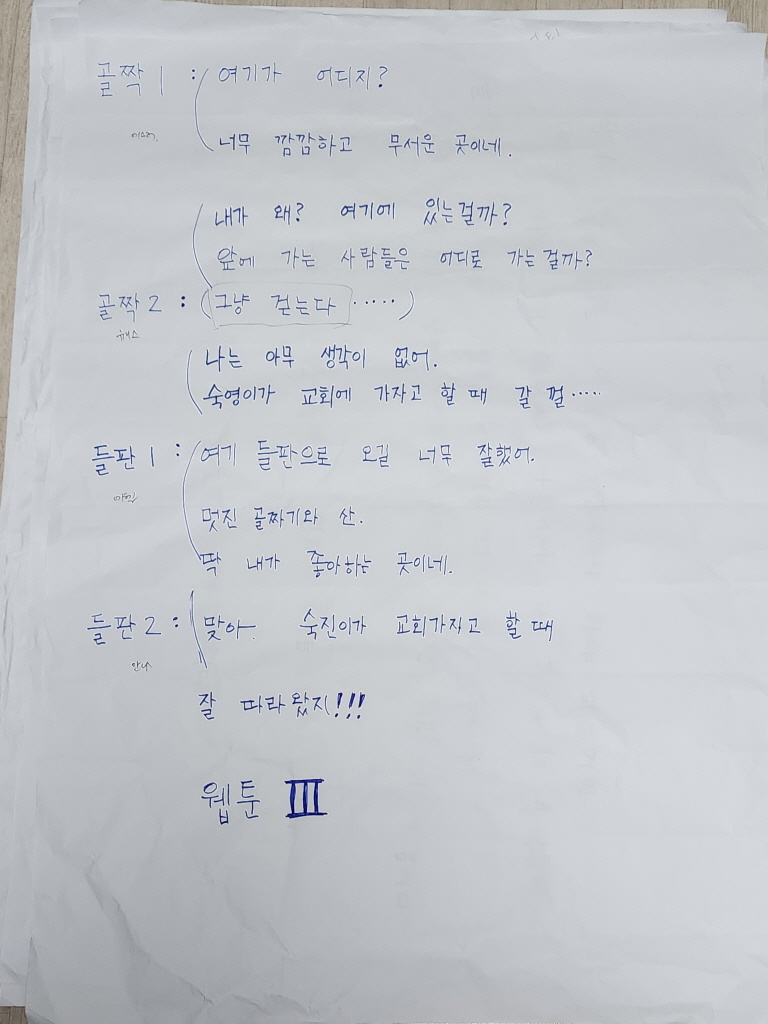 골짝 1 : 여기가 어디지?
너무 깜깜하고 무서운 곳이네.
내가 왜? 여기에 있는걸까?
앞에 가는 사람들은 어디로 가는걸까?
골짝 2 : (그냥 걷는다 ·····)
나는 아무 생각이 없어.
숙영이가 교회에 가자고 할 때 갈 껄·····
들판 1 : 여기 들판으로 오길 너무 잘했어.
멋진 골짜기와 산.
딱 내가 좋아하는 곳이네.
들판 2 : 맞아. 숙진이가 교회가자고 할 때
안나
잘 따라왔지!!!
웹툰 III